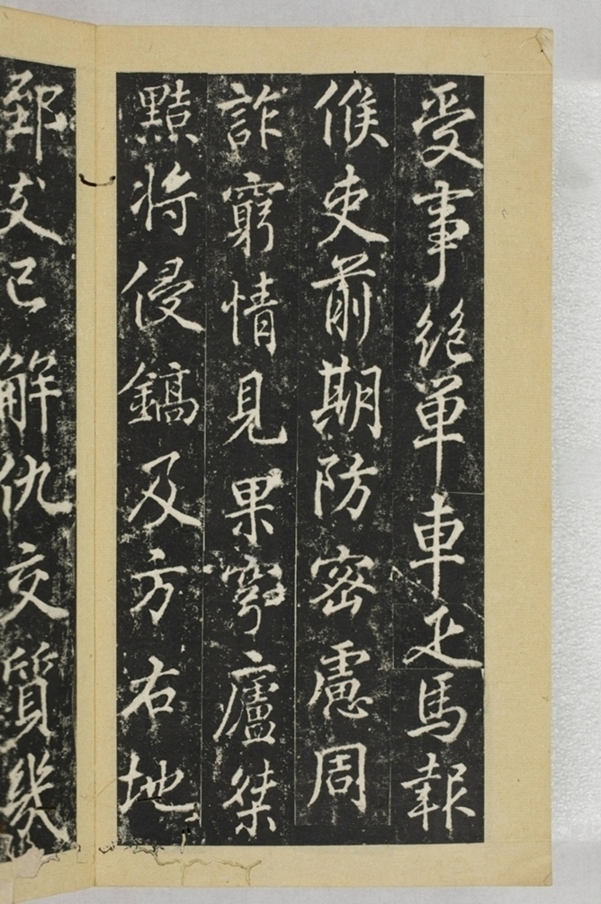 受事絶單車疋馬報
候吏前期防密慮周
詐窮情見果穹廬桀
黠将侵鎬及方右地
郅支已解仇交質幾